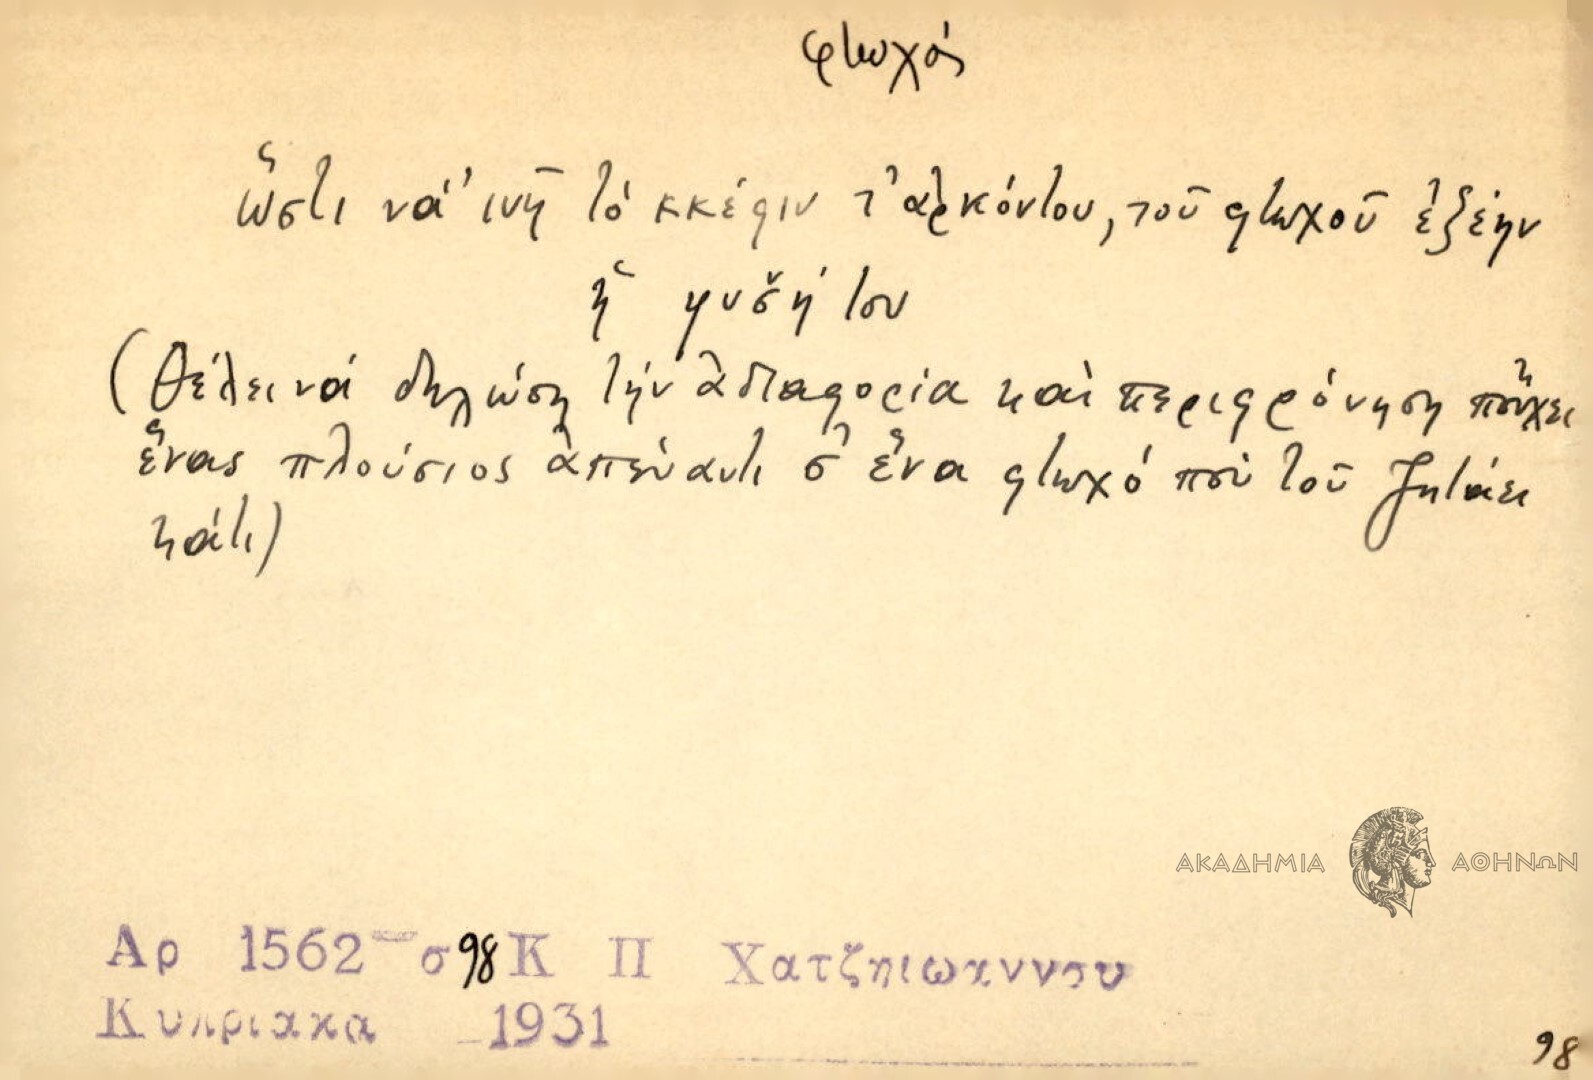 φτωχός
ὥστι νά 'ινῇ τό κκέφιν τ' ἀρκόντου, τοῦ φτωχοῦ ἐξέην
ἡ ψυσ̌ή του
(θέλει νά δηλώση τήν ἀδιαφορία καὶ περιφρόνηση πὤχει
ἕνας πλούσιος ἀπέναντι σ' ἕνα φτωχό πού τοῦ ζητάει
κάτι)
ΑΚΑΔΗΜΙΑ ΑΘΗΝΩΝ
Αρ 1562 σ 98 Κ Π Χατζηιωαννου
Κυπριακα 1931
98